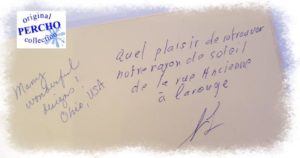 original
PERCHO
collection
Many
wonderful
designs!
Ohio, USA
Quel plaisir de retrouver
notre rayon de soleil
de la rue Ancienne
à Carouge